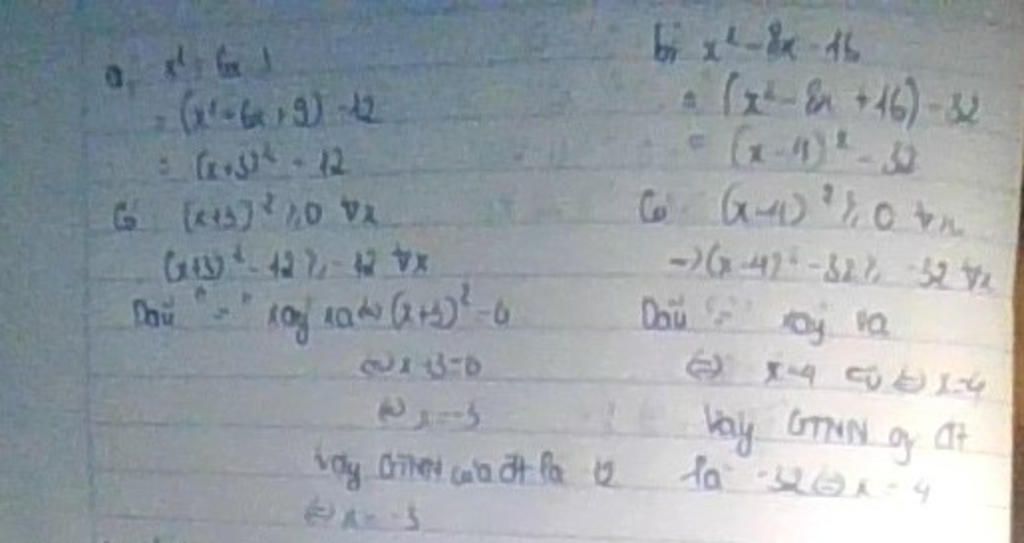 a, x²
= (x² + 6x + 9) - 12
= (x+3)² - 12
Có (x+3)² ≥ 0 ∀x
(x+3)² - 12 ≥ -12 ∀x
Dấu "=" xảy ra ⇔ (x+3)² = 0
⇔ x+3=0
⇔ x = -3
Vậy GTNN của đt là 12
⇔ x = -3
b, x² - 8x - 16
= (x² - 8x + 16) - 32
= (x - 4)² - 32
Có (x-4)² ≥ 0 ∀x
→ (x-4)² - 32 ≥ -32 ∀x
Dấu "=" xảy ra
⇔ x-4 ⇔ x=4
Vậy GTNN đt
là -32 ⇔ x = 4